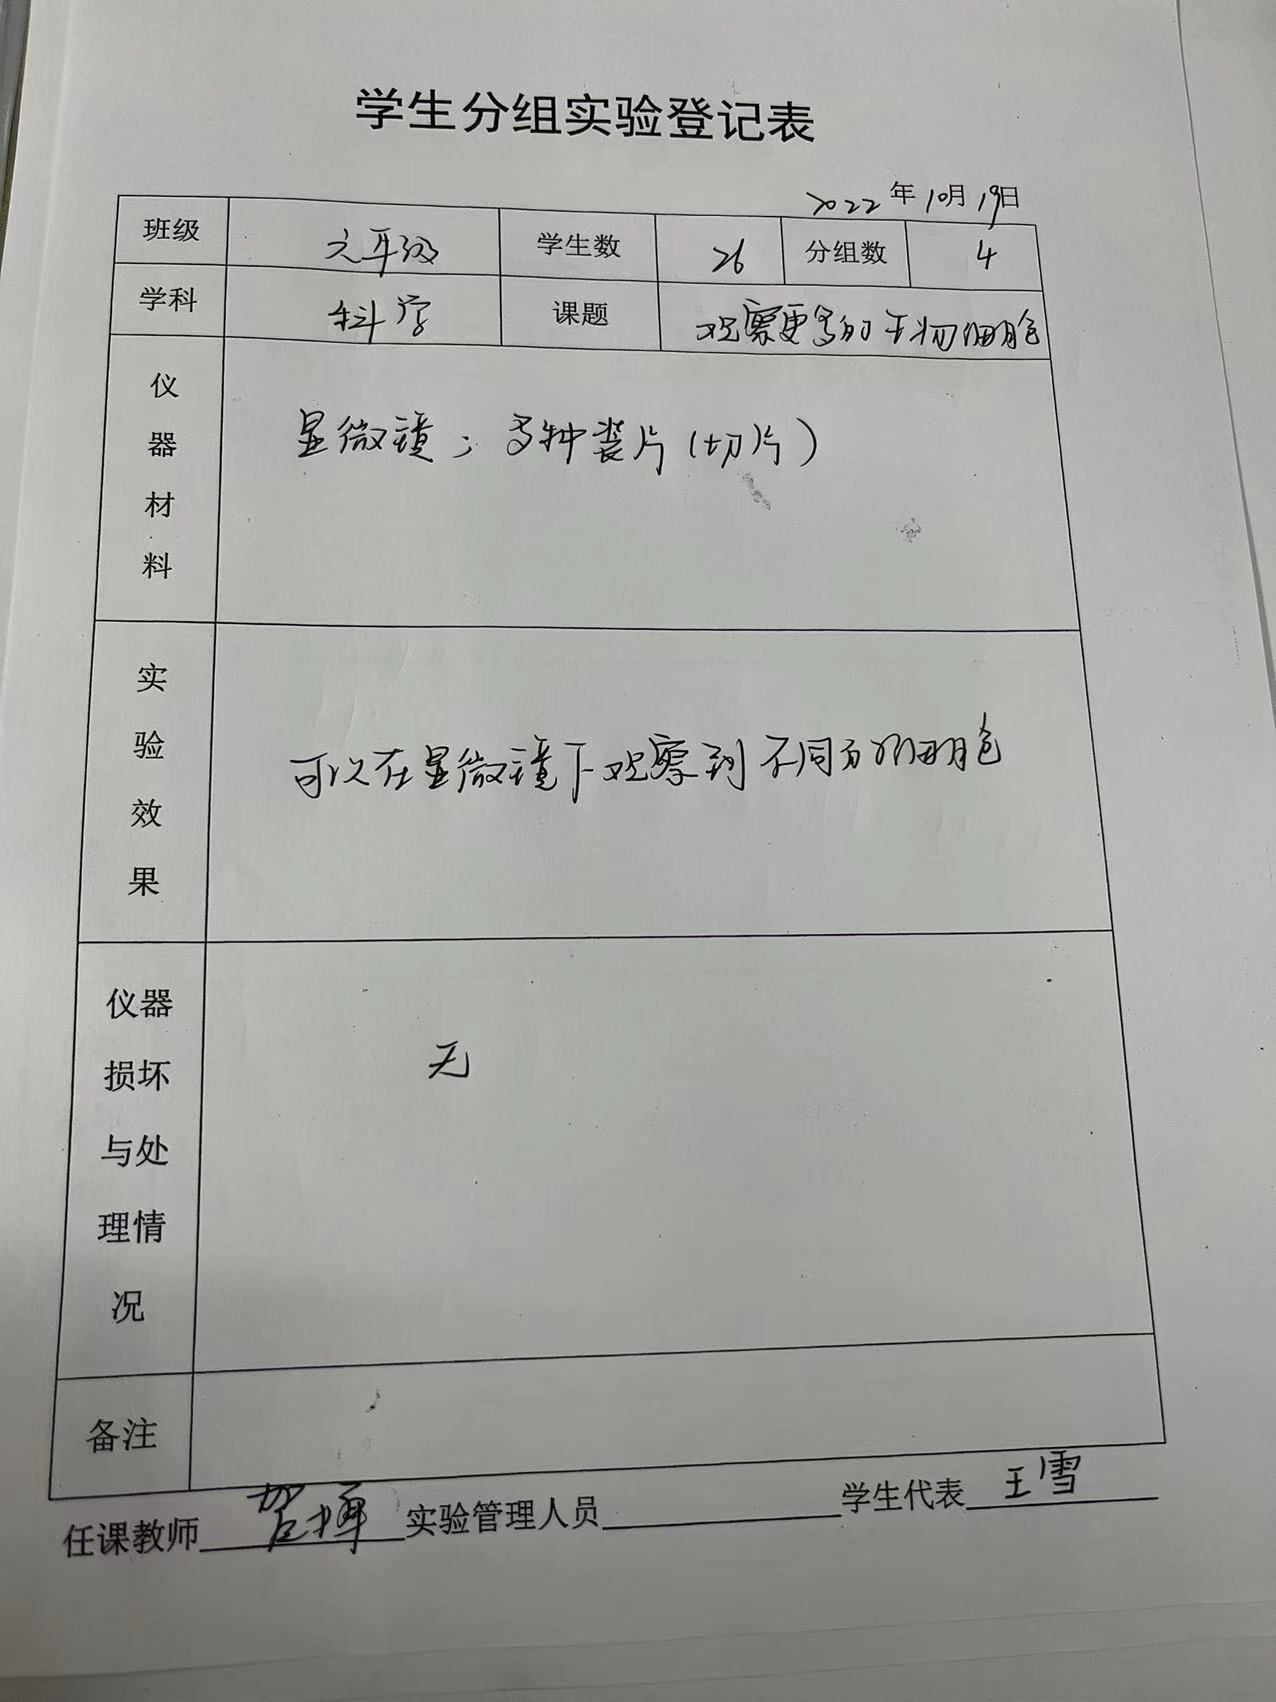 学生分组实验登记表
2022年10月19日
班级 六年级 学生数 26 分组数 4
学科 科学 课题 观察更多的生物细胞
仪器材料 显微镜；多种装片(切片)
实验效果 可以在显微镜下观察到不同的细胞
仪器损坏与处理情况 无
备注
任课教师 实验管理人员 学生代表 王雪